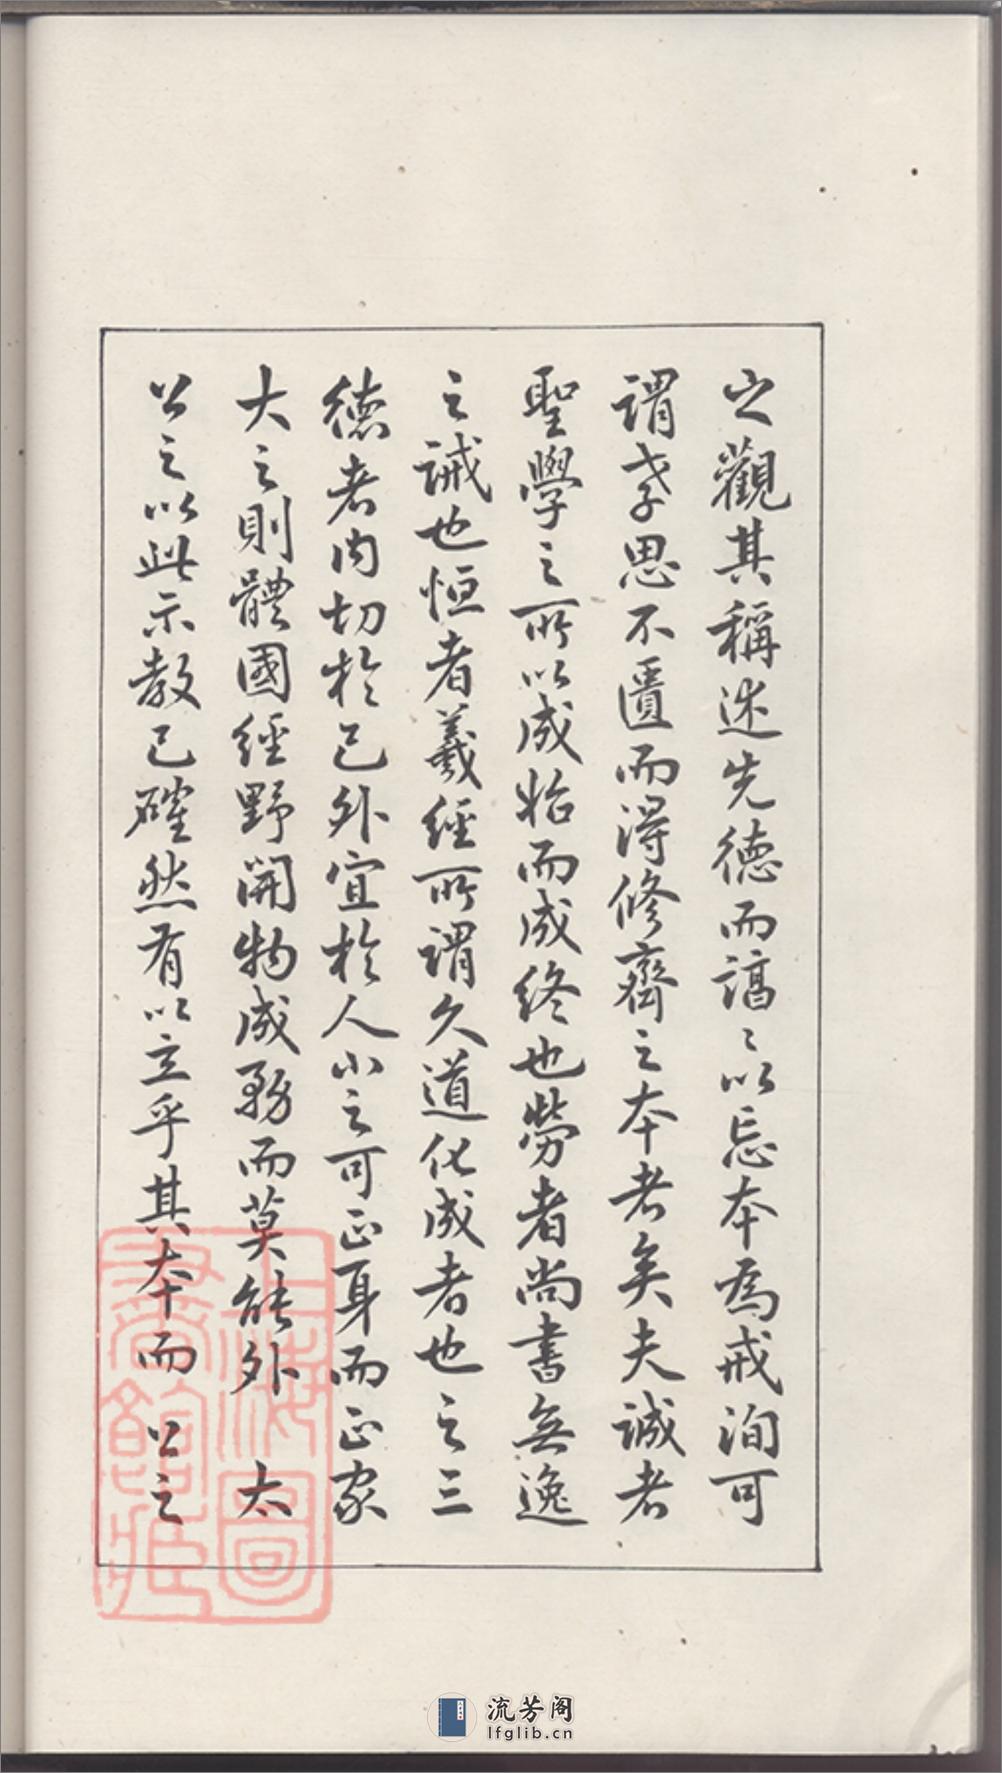 之觀其稱述先德而諄〻以忘本為戒洵可
謂孝思不匱而得修齊之本者矣夫誠者
聖學之所以成始而成終也勞者尚書無逸
之誡也恒者羲經所謂久道化成者也之三
德者內切於己外宜於人小之可正身而正家
大之則體國經野開物成務而莫能外 太
公之以此示教已確然有以立乎其本而 公之
上海圖
書館藏
流芳阁
lfglib.cn